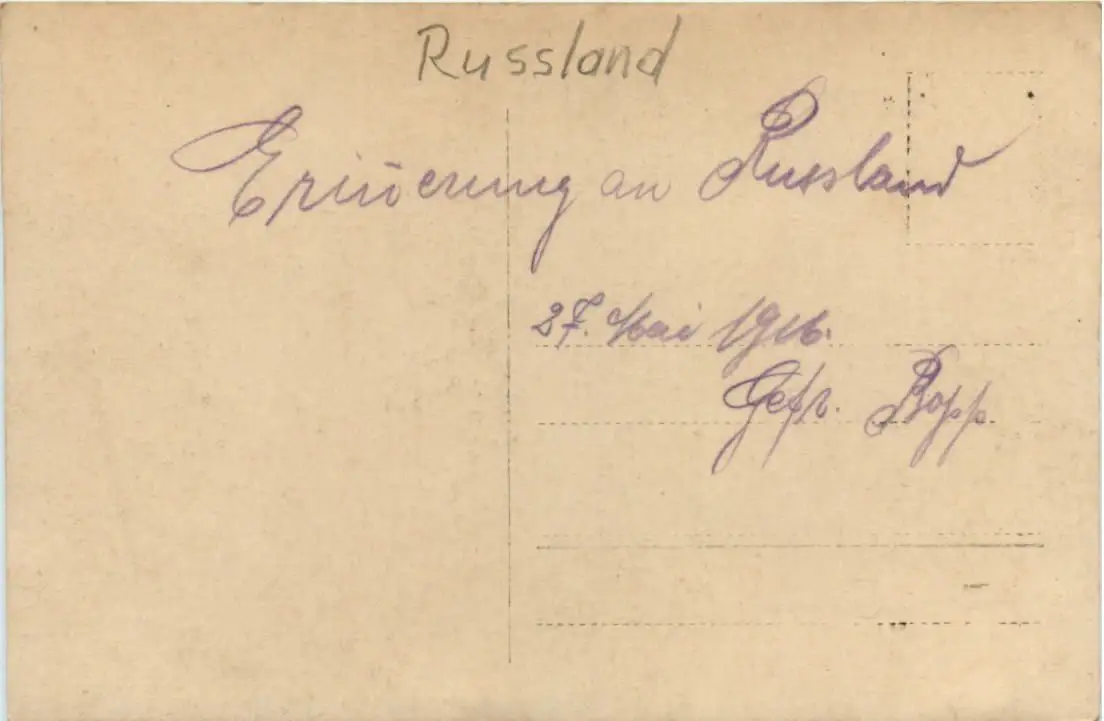 Russland
Erinerung an Russland
27. Mai 1916.
Gefr. Bopp.